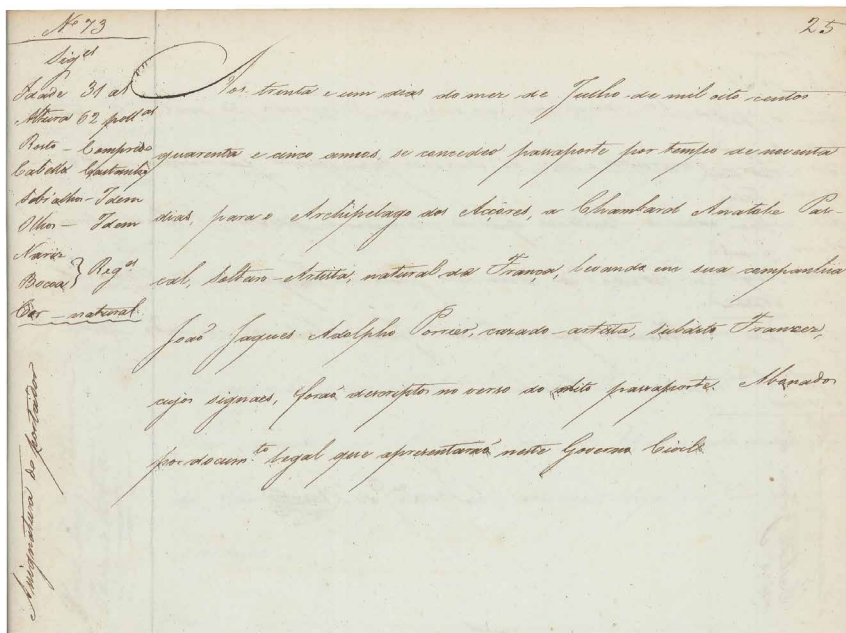 Nº 73
25
Sig.es
Idade 31 as
Altura 62 poll.as
Rosto - Comprido
Cabello Castanho
Sobrolhos - Idem
Olhos - Idem
Nariz
Bocca } Reg.es
Cor - natural
Aos trinta e um dias do mez de Julho de mil oito centos
quarenta e cinco annos, se concedeo passaporte por tempo de noventa
dias, para o Archipelago dos Açôres, a Chambard Anatole Pas-
cal, Solteiro - Artista, natural da França, levando em sua companhia
João Jaques Adolpho Porrier, cazado - artista, subdito Francez,
cujos signaes, forão descriptos no verso do dito passaporte. Abonados
por docum.to legal que apresentarão neste Governo Civil
Assignatura do portador